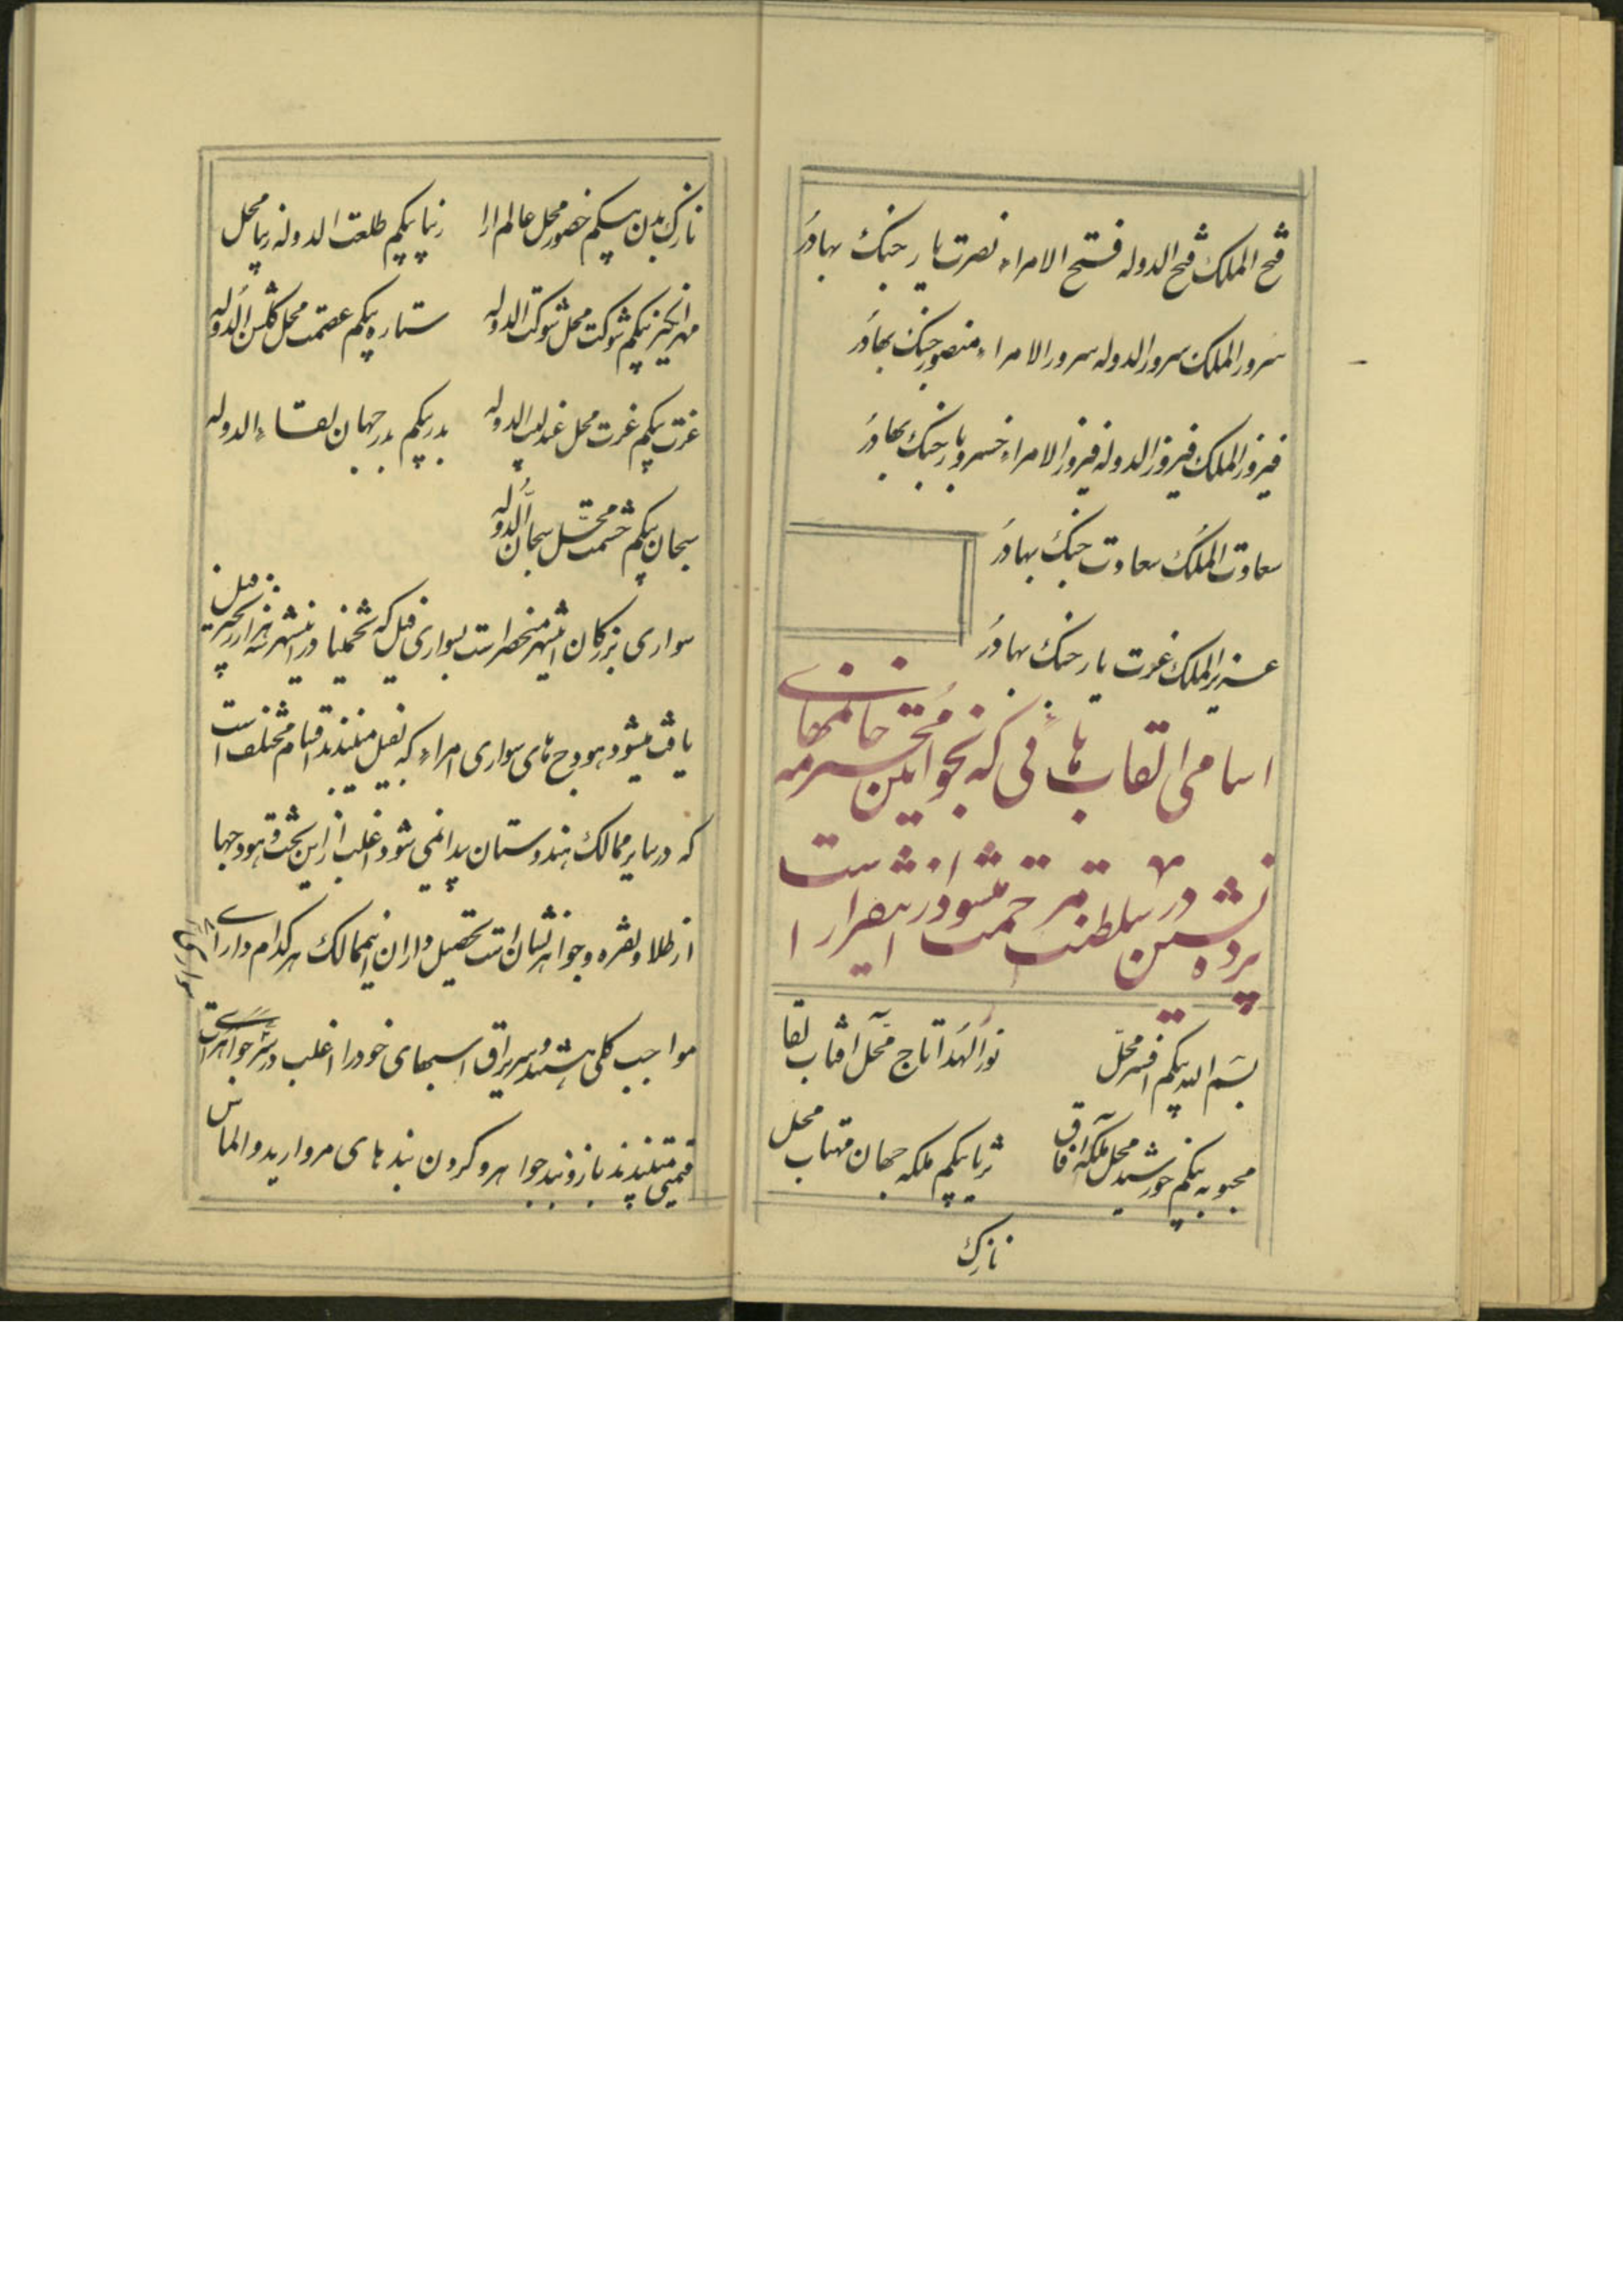 فتح الملک فتح الدوله فتح الامراء نصرت یار جنک بهادر
سرور الملک سرور الدوله سرور الامراء منصور جنک بهادر
فیروز الملک فیروز الدوله فیروز الامراء خسرو یار جنک بهادر
سعادت الملک سعادت جنک بهادر
عزیز الملک عزت یار جنک بهادر
اسامی القاب هائی که بخواتین محترمه خانمهای
پرده نشین در سلطنت مرحمت میشود از اینقرار است
بسم الله بیکم افسر محل نور الهدا تاج محل آفتاب لقا
محبوبه بیکم خورشید محل ملکه آفاق ثریا بیکم ملکه جهان مهتاب محل
نازک
نازک بدن بیکم حضور محل عالم ارا زیبا بیکم طلعت الدوله زیبا محل
مهر انکیز بیکم شوکت محل شوکت الدوله ستاره بیکم عصمت محل کلشن الدوله
عزت بیکم عزت محل عندلیب الدوله بدر بیکم بدر جهان لقاء الدوله
سبحان بیکم حشمت محل سبحان الدوله
سواری بزرکان اینشهر منحصر است بسواری فیل که تخمینا در اینشهر سه هزار زنجیر فیل
یافت میشود هودج های سواری امراء که بفیل میبندند اقسام مختلف است
که در سایر ممالک هندوستان پیدا نمی شود اغلب از این تخت و هودجها
از طلا و نقره و جواهر نشان است تحصیل داران اینممالک هر کدام دارای
سواری
مواجب کلی هستند و سر یراق اسبهای خود را اغلب در سر جواهرات
قیمتی میبندند بازوبند جواهر و کردن بند های مروارید و الماس